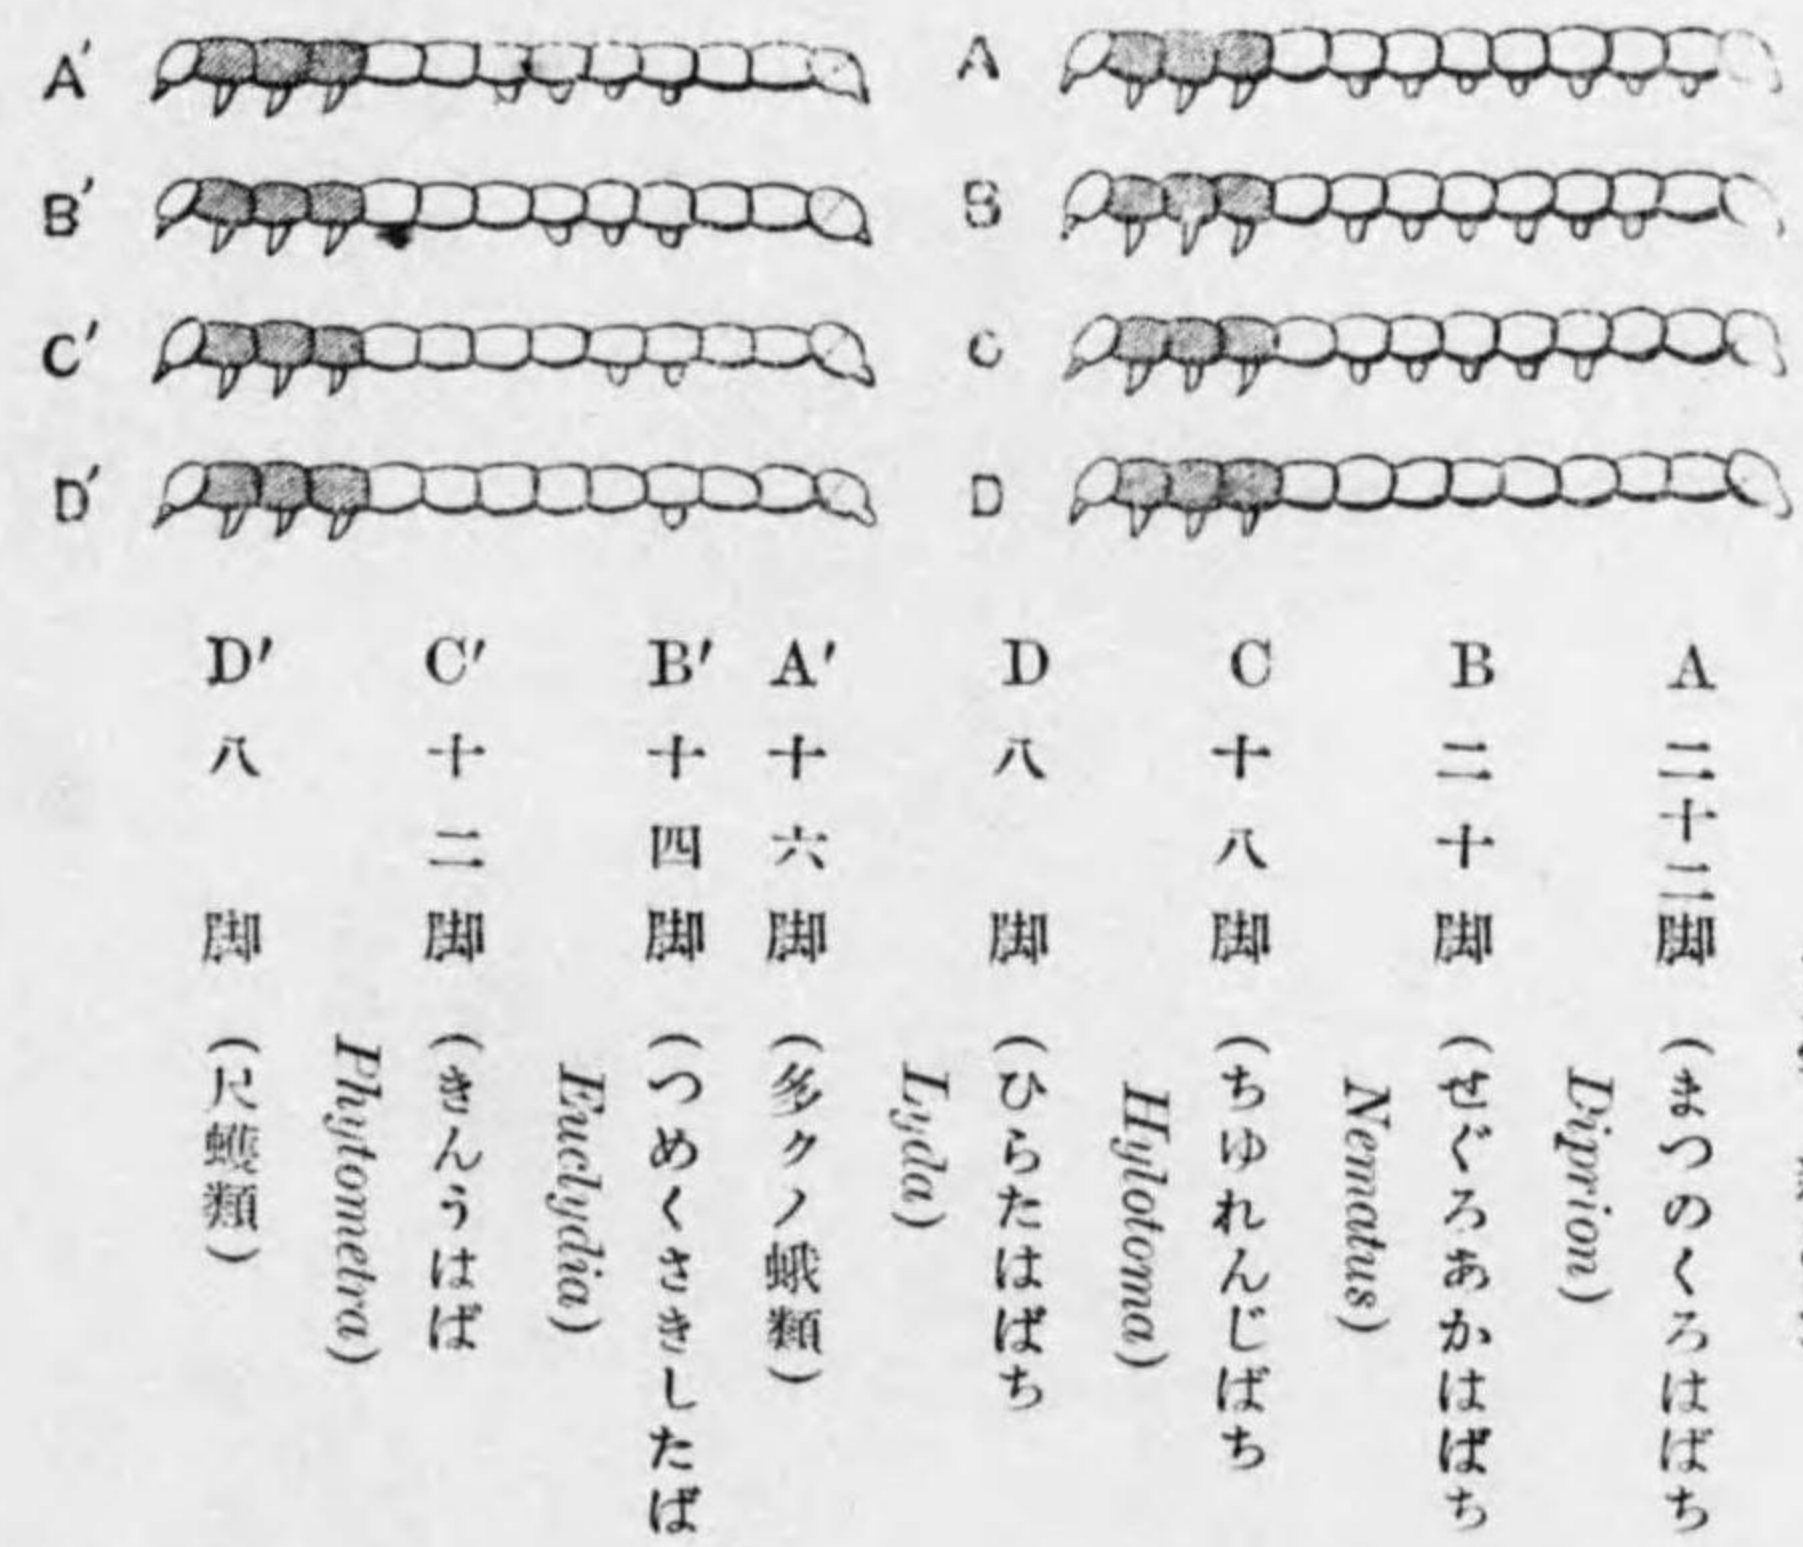 A
B
C
D
A′
B′
C′
D′
A 二十二脚 (まつのくろはばち
Diprion)
B 二十脚 (せぐろあかはばち
Nematus)
C 十八脚 (ちゆれんじばち
Hylotoma)
D 八脚 (ひらたはばち
Lyda)
A′ 十六脚 (多クノ蛾類)
B′ 十四脚 (つめくさきしたば
Euclydia)
C′ 十二脚 (きんうはば
Phytometra)
D′ 八脚 (尺蠖類)